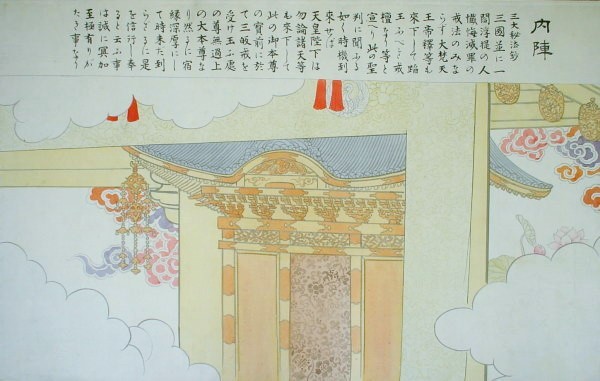 内陣
三大秘法鈔
三國並に一
閻浮提の人
懺悔滅罪の
戒法のみな
らず大梵天
王帝釋等も
來下して蹋
玉ふべき戒
壇なり等と
宣へり此の聖
判に聞ふる
如く時機到
來せば
天皇陛下は
勿論諸天等
も來下して
此の御本尊
の寶前に於
て三皈戒を
受け玉ふ處
の尊無過上
の大本尊な
り然るに宿
緣深厚にし
て時未だ到
らざるに是
を信行し奉
ると云ふ事
は誠に冥加
至極有りが
たき事なり